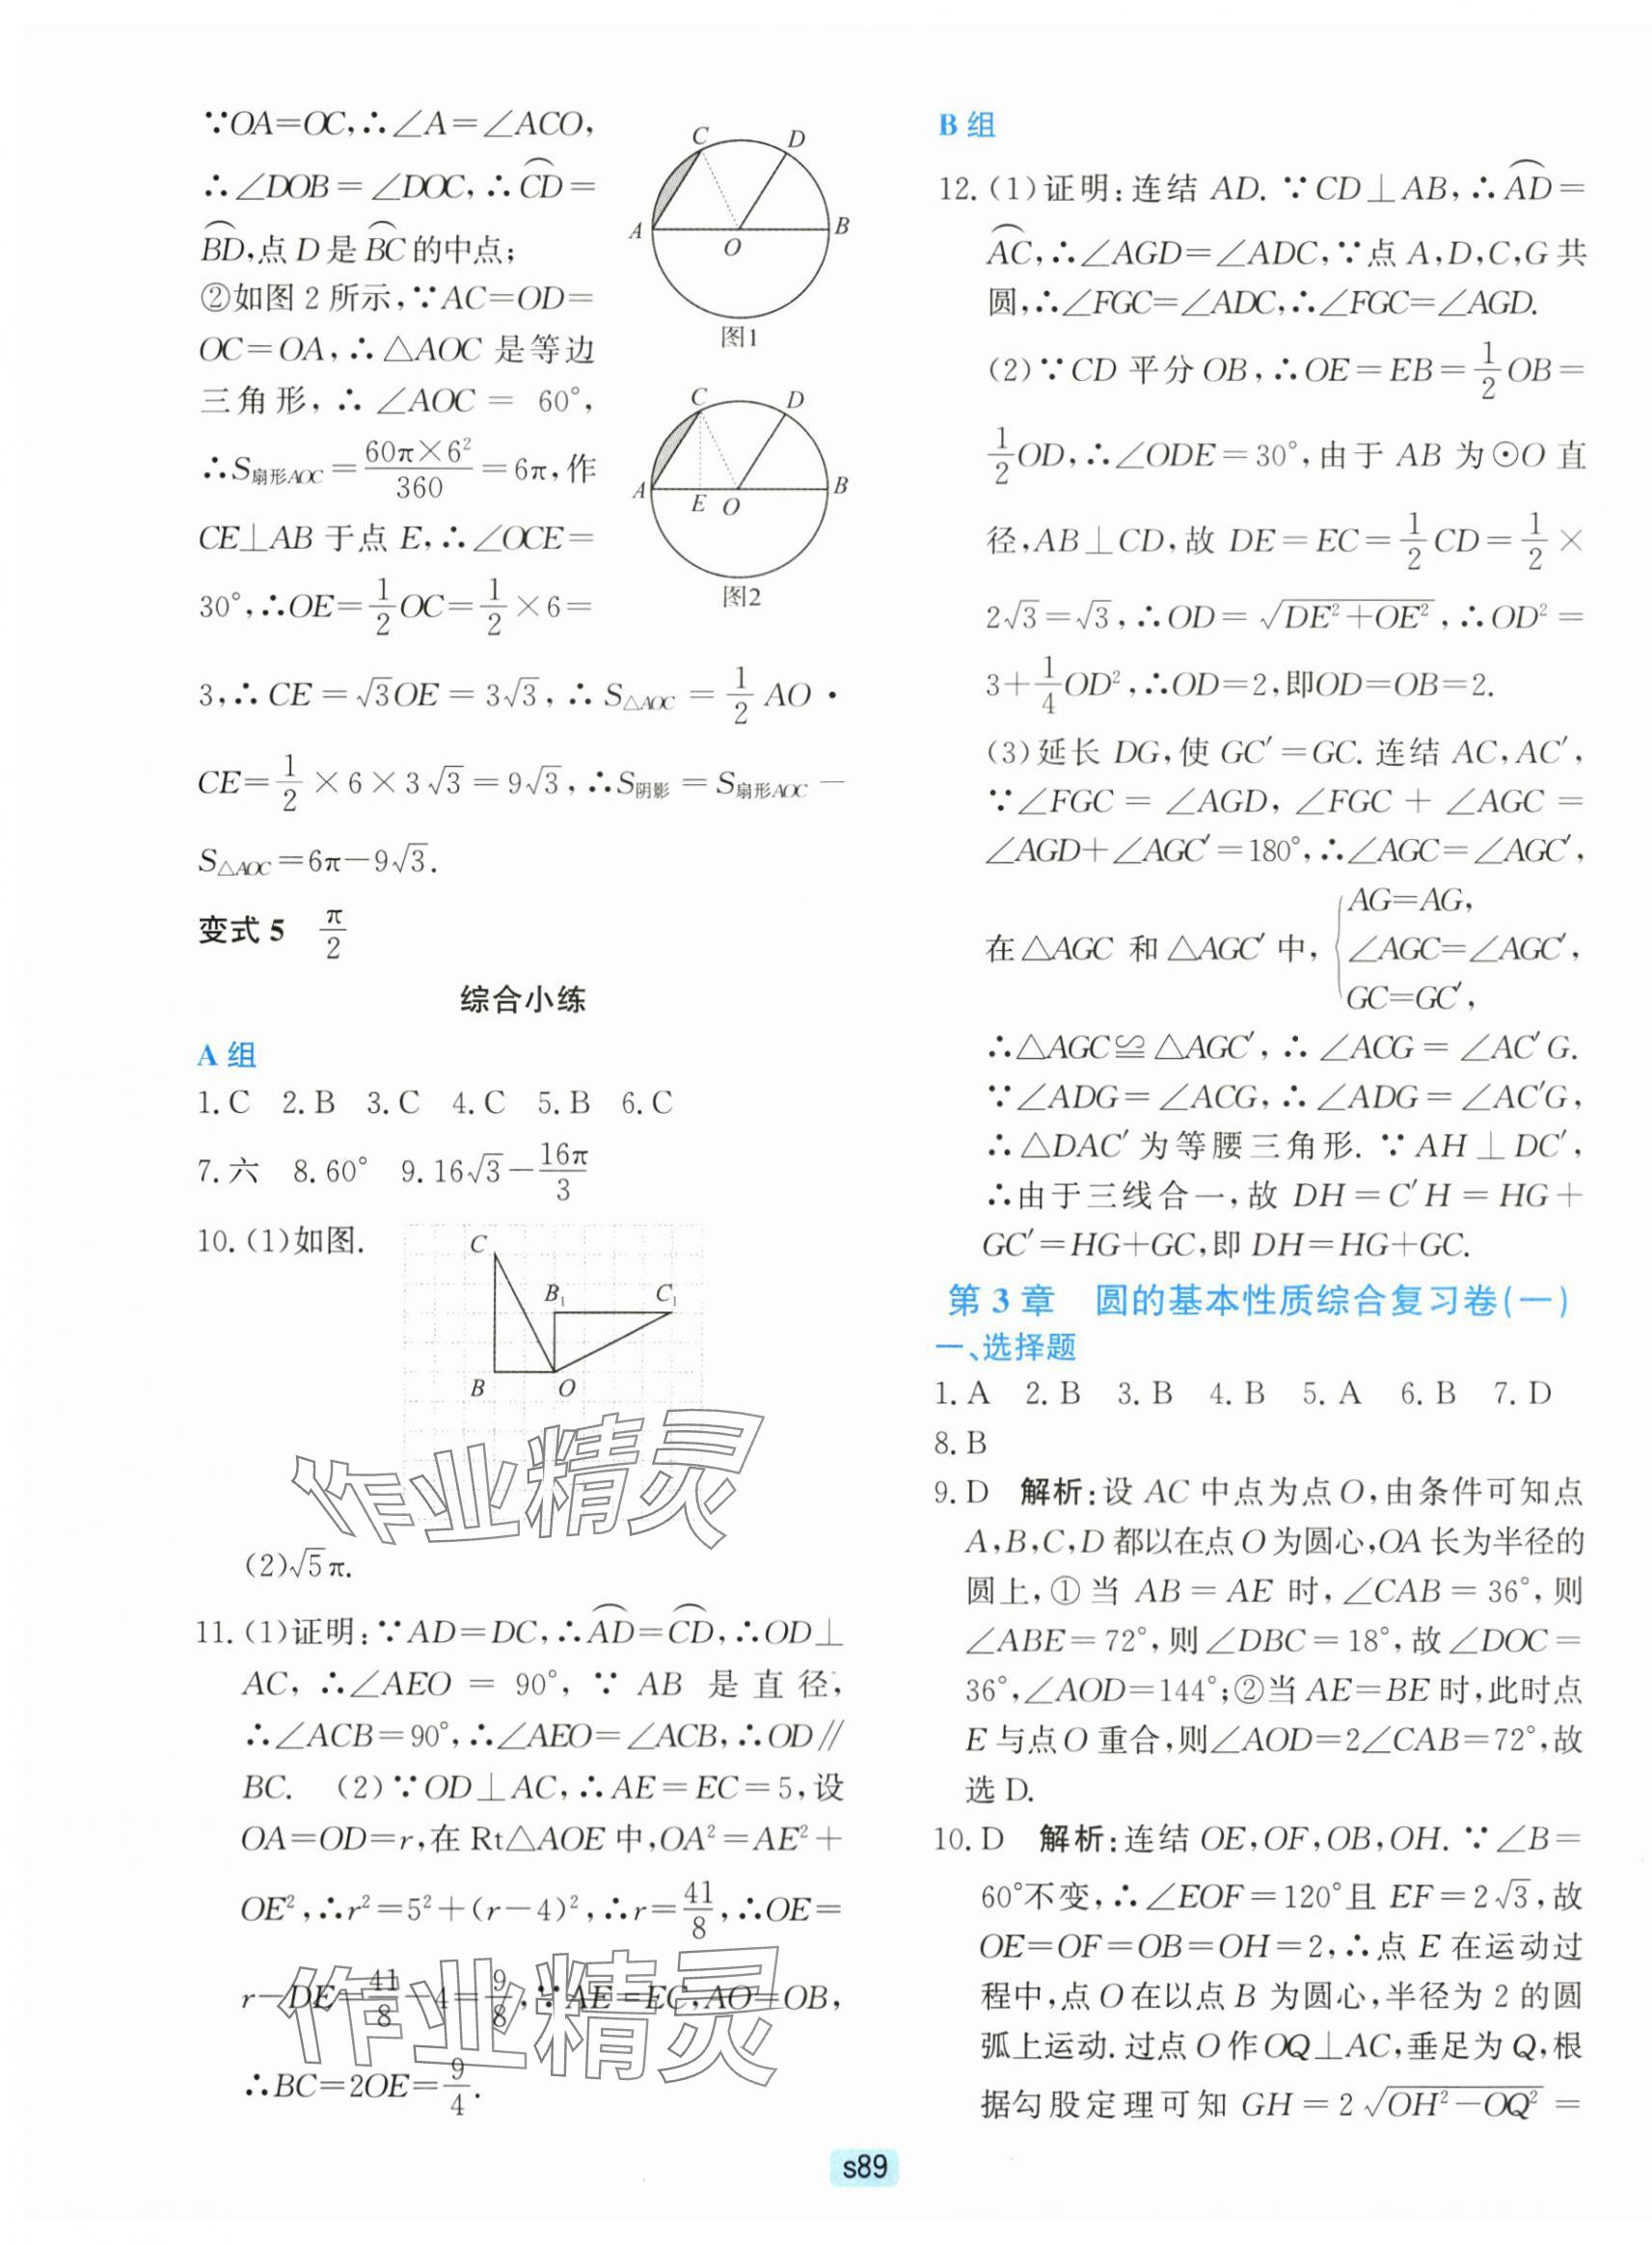 ∵OA=OC,∴∠A=∠ACO,
∴∠DOB=∠DOC,∴⌒CD=
⌒BD,点D是⌒BC的中点;
②如图2所示,∵AC=OD=
OC=OA,∴△AOC是等边
三角形,∴∠AOC=60°,
∴S扇形AOC=60π×6²/360=6π,作
CE⊥AB于点E,∴∠OCE=
30°,∴OE=1/2OC=1/2×6=
C D A O B
图1
C D A E O B
图2
3,∴CE=√3OE=3√3,∴S△AOC=1/2AO·
CE=1/2×6×3√3=9√3,∴S阴影=S扇形AOC-
S△AOC=6π-9√3.
变式5 π/2
综合小练
A组
1.C 2.B 3.C 4.C 5.B 6.C
7.六 8.60° 9.16√3-16π/3
10.(1)如图.
C B₁ C₁ B O
(2)√5π.
11.(1)证明:∵AD=DC,∴⌒AD=⌒CD,∴OD⊥
AC,∴∠AEO=90°,∵AB是直径,
∴∠ACB=90°,∴∠AEO=∠ACB,∴OD∥
BC. (2)∵OD⊥AC,∴AE=EC=5,设
OA=OD=r,在Rt△AOE中,OA²=AE²+
OE²,∴r²=5²+(r-4)²,∴r=41/8,∴OE=
r-DE=41/8-4=9/8,∵AE=EC,AO=OB,
∴BC=2OE=9/4.
作业精灵
作业精灵
B组
12.(1)证明:连结AD.∵CD⊥AB,∴⌒AD=
⌒AC,∴∠AGD=∠ADC,∵点A,D,C,G共
圆,∴∠FGC=∠ADC,∴∠FGC=∠AGD.
(2)∵CD平分OB,∴OE=EB=1/2OB=
1/2OD,∴∠ODE=30°,由于AB为⊙O直
径,AB⊥CD,故DE=EC=1/2CD=1/2×
2√3=√3,∴OD=√(DE²+OE²),∴OD²=
3+1/4OD²,∴OD=2,即OD=OB=2.
(3)延长DG,使GC′=GC.连结AC,AC′,
∵∠FGC=∠AGD,∠FGC+∠AGC=
∠AGD+∠AGC′=180°,∴∠AGC=∠AGC′,
在△AGC和△AGC′中,{AG=AG,
∠AGC=∠AGC′,
GC=GC′,
∴△AGC≌△AGC′,∴∠ACG=∠AC′G.
∵∠ADG=∠ACG,∴∠ADG=∠AC′G,
∴△DAC′为等腰三角形.∵AH⊥DC′,
∴由于三线合一,故DH=C′H=HG+
GC′=HG+GC,即DH=HG+GC.
第3章 圆的基本性质综合复习卷(一)
一、选择题
1.A 2.B 3.B 4.B 5.A 6.B 7.D
8.B
9.D 解析:设AC中点为点O,由条件可知点
A,B,C,D都以在点O为圆心,OA长为半径的
圆上,①当AB=AE时,∠CAB=36°,则
∠ABE=72°,则∠DBC=18°,故∠DOC=
36°,∠AOD=144°;②当AE=BE时,此时点
E与点O重合,则∠AOD=2∠CAB=72°,故
选D.
10.D 解析:连结OE,OF,OB,OH.∵∠B=
60°不变,∴∠EOF=120°且EF=2√3,故
OE=OF=OB=OH=2,∴点E在运动过
程中,点O在以点B为圆心,半径为2的圆
弧上运动.过点O作OQ⊥AC,垂足为Q,根
据勾股定理可知GH=2√(OH²-OQ²)=
s89